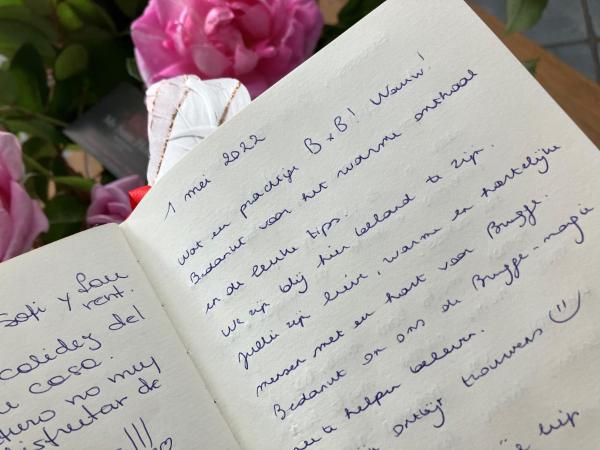 Sofi y Lau
rent.
calidez del
u casa.
uturo no muy
disfrutar de
!!!
1 mei 2022
Wat een prachtige B&B! Wauw!
Bedankt voor het warme onthaal
en de leuke tips.
We zijn blij hier beland te zijn.
Jullie zijn lieve, warme en hartelijke
mensen met een hart voor Brugge.
Bedankt en ons de Brugge-magie
mee te helpen beleven.
ontbijt trouwens